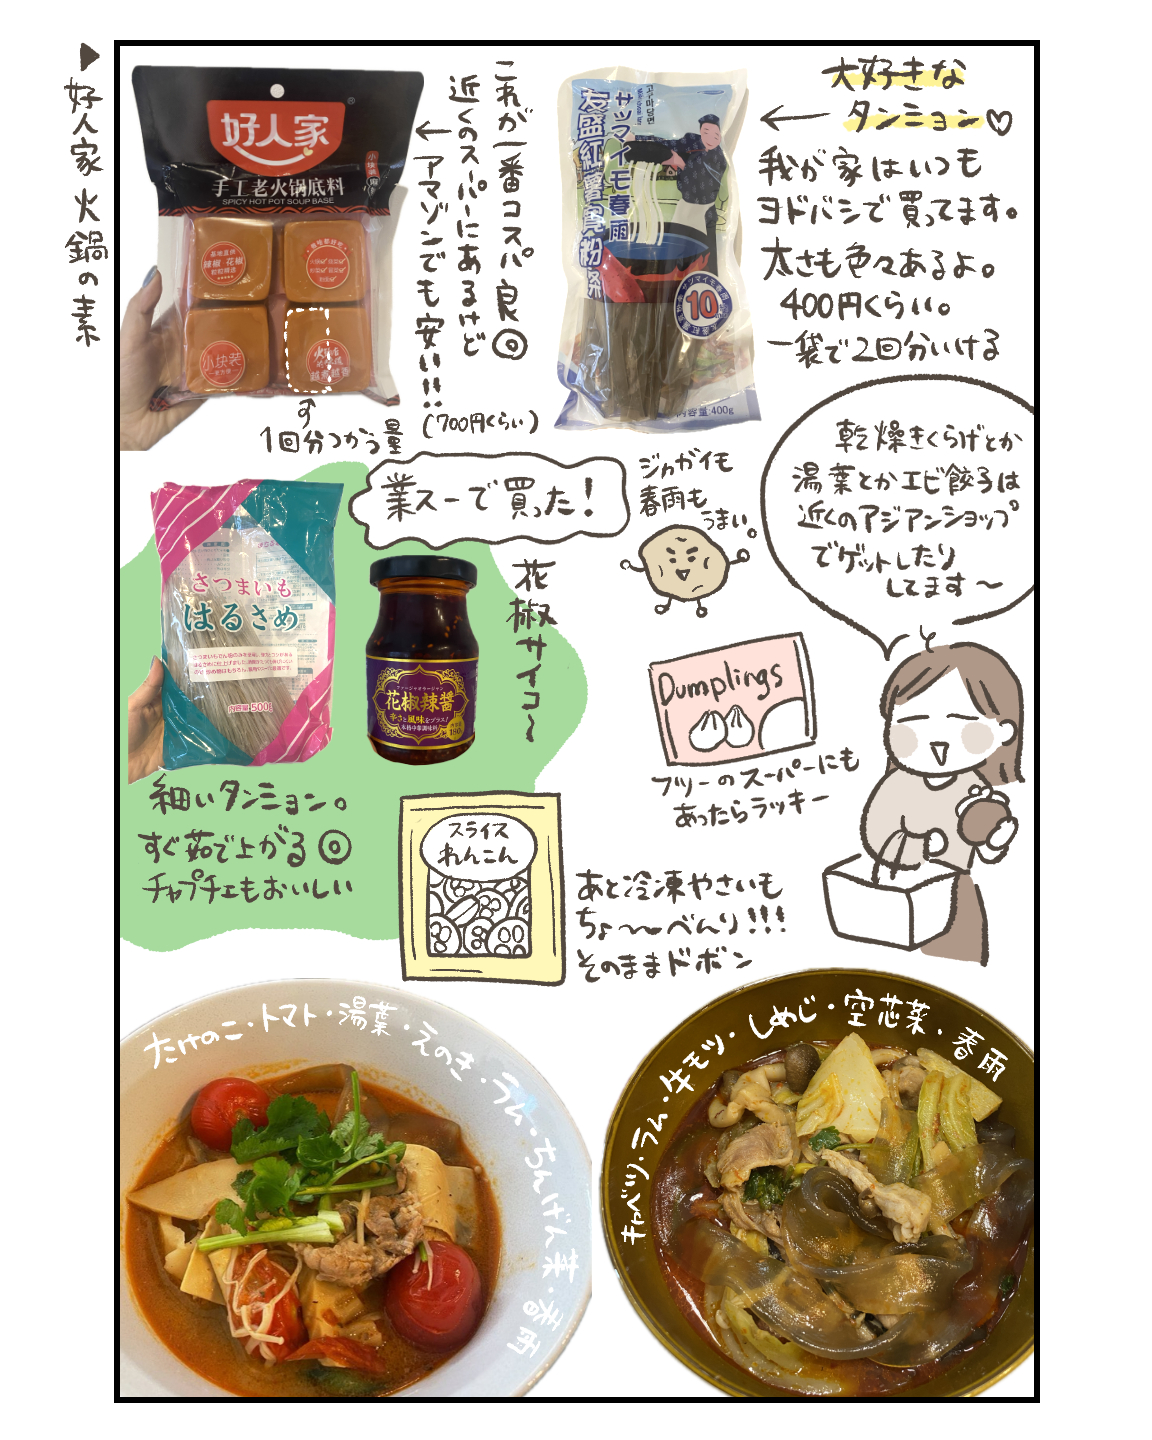 ▶好人家 火鍋の素
好人家
®
小块装
手工老火锅底料
SPICY HOT POT SOUP BASE
辣椒 花椒
小块装
越煮越香
1回分つかう量
これが一番コスパ良◎
近くのスーパーにあるけど
←アマゾンでも安い!!
(700円くらい)
고구마당면
サツマイモ春雨
友盛紅薯寛粉条
10
内容量:400g
大好きな
←タンミョン♡
我が家はいつも
ヨドバシで買ってます。
太さも色々あるよ。
400円くらい。
一袋で2回分いける
乾燥きくらげとか
湯葉とかエビ餃子は
近くのアジアンショップ
でゲットしたり
してます〜
業スーで買った!
ジャガイモ
春雨も
うまい。
さつまいも
はるさめ
内容量500g
花椒辣醤
辛さと風味をプラス!
本格中華調味料
180g
花椒サイコ〜
細いタンミョン。
すぐ茹で上がる◎
チャプチェもおいしい
Dumplings
フツーのスーパーにも
あったらラッキー
スライス
れんこん
あと冷凍やさいも
ちょ〜〜べんり!!!
そのままドボン
たけのこ・トマト・湯葉・えのき・ラム・ちんげん菜・春雨
キャベツ・ラム・牛モツ・しめじ・空芯菜・春雨